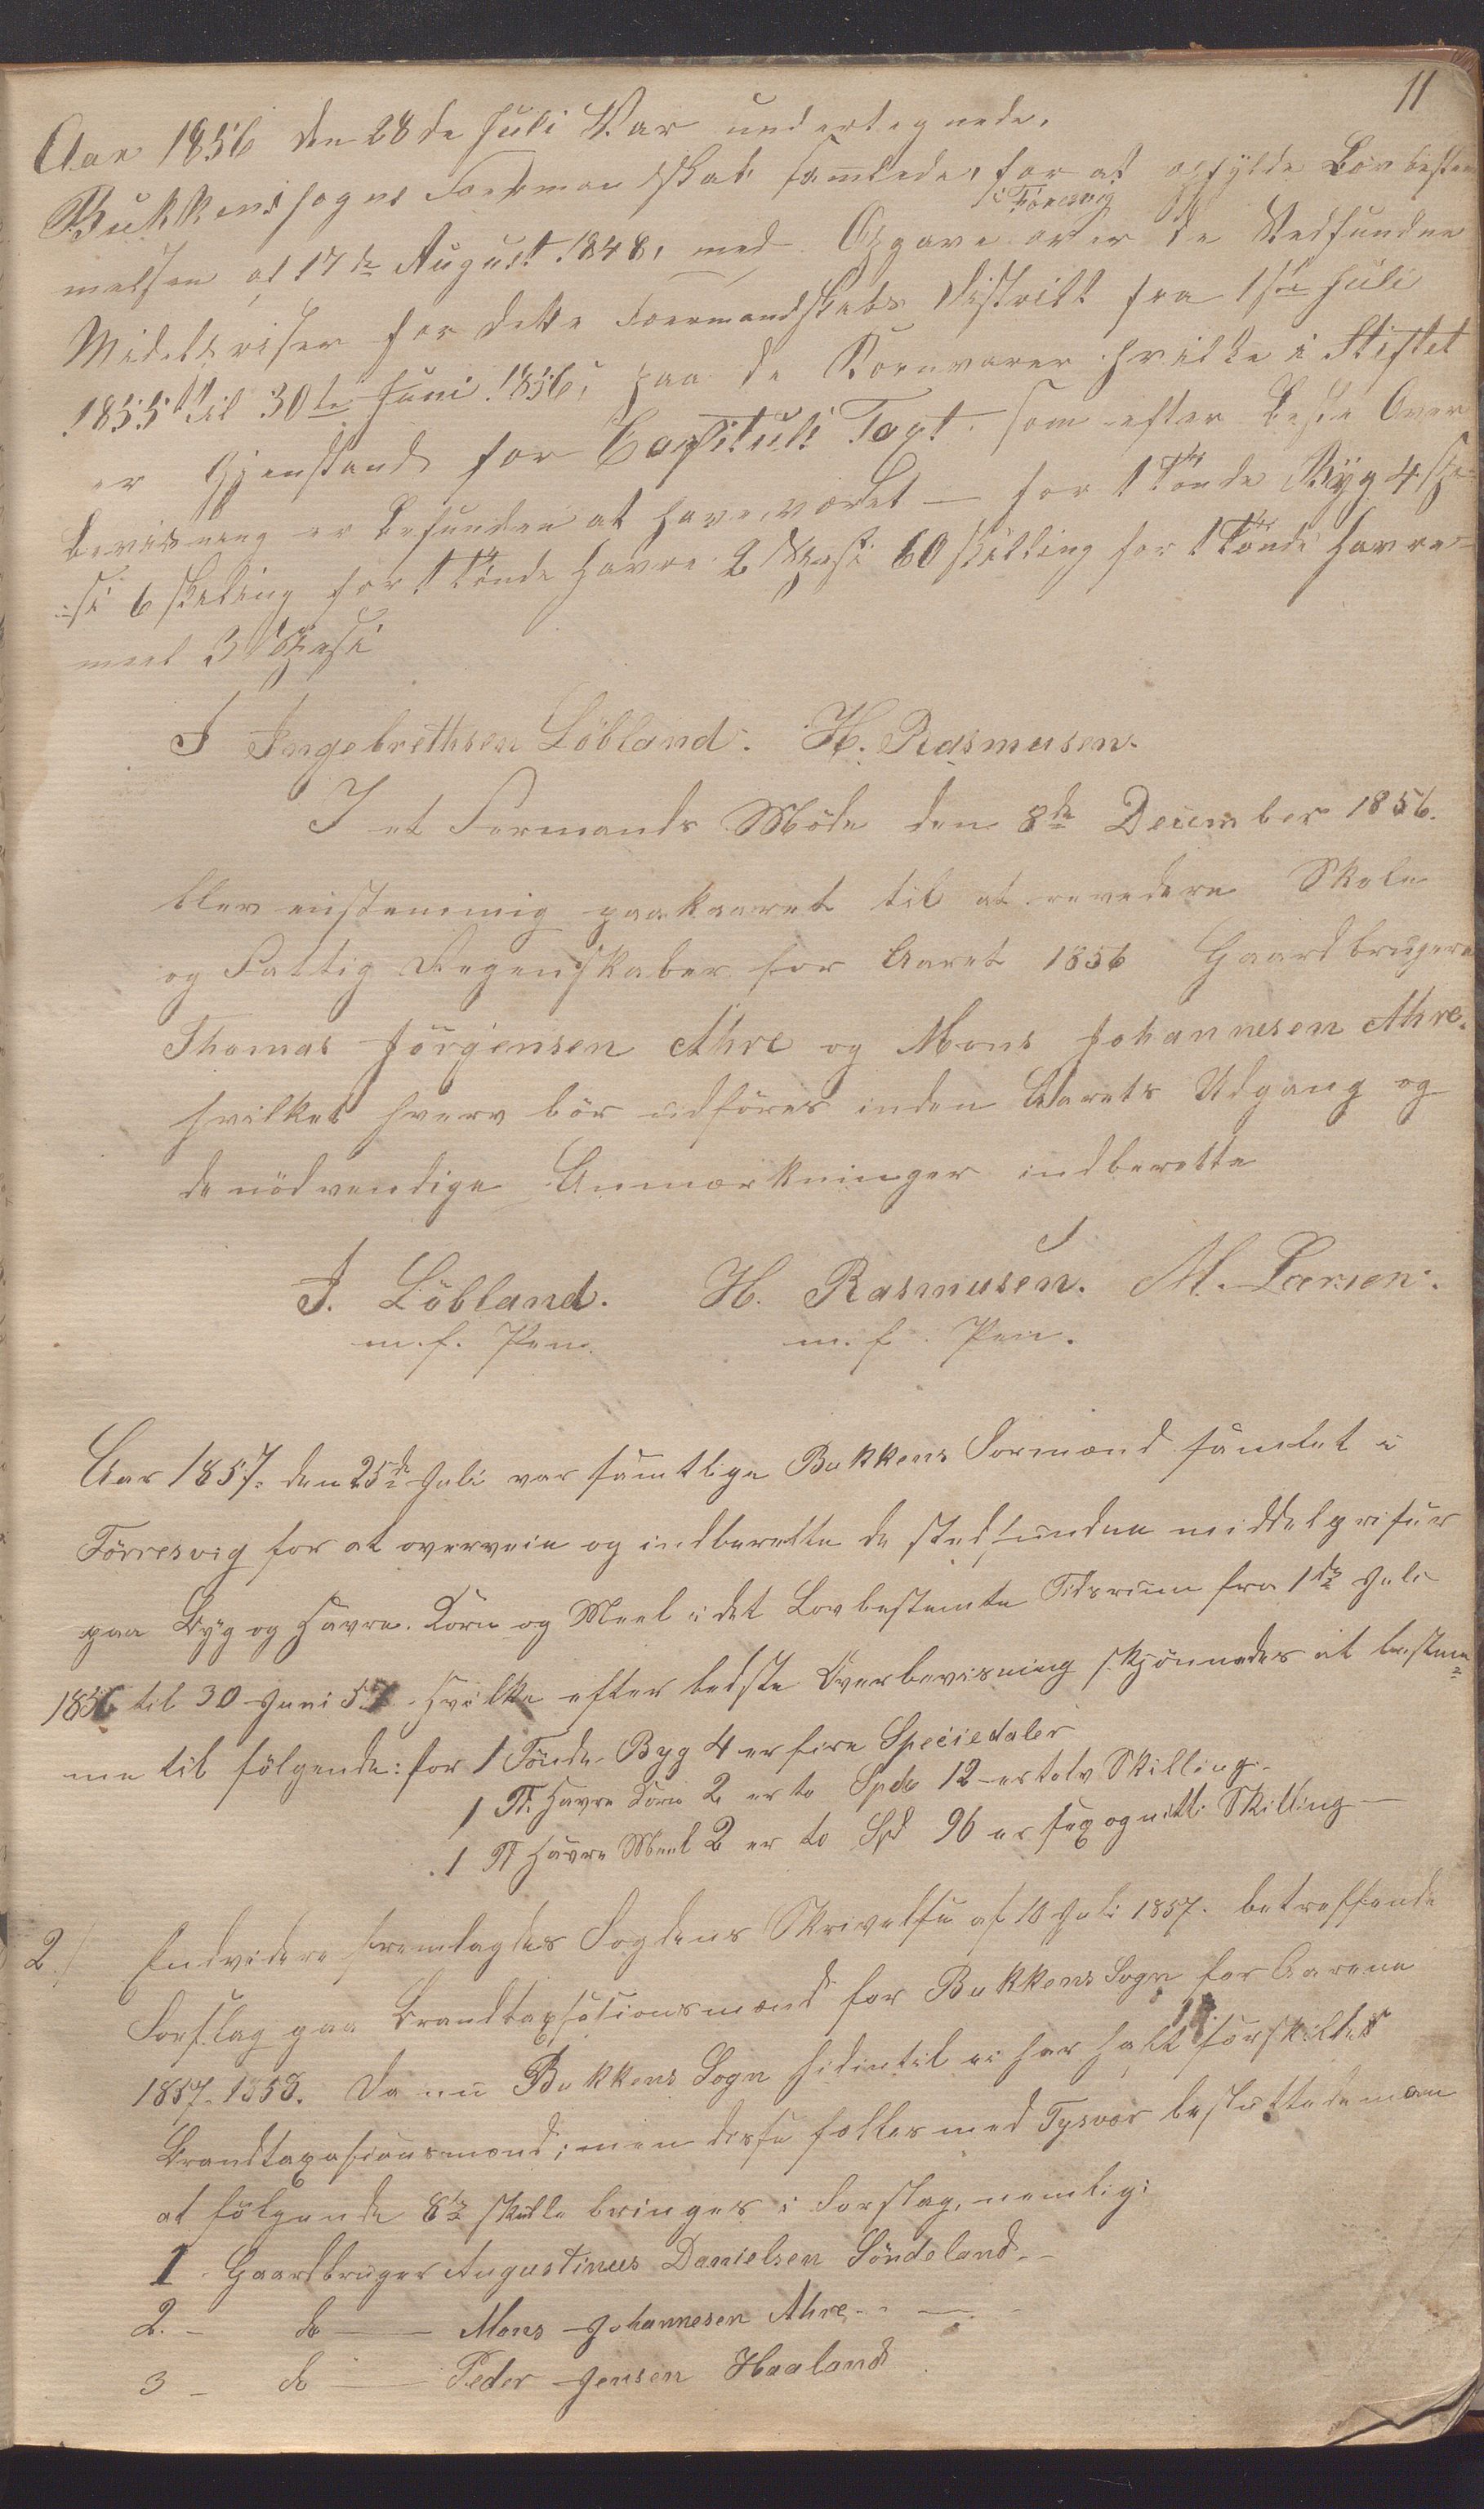 11
Aar 1856 den 28de Juli Var undertegnede.
Bukkens sogns Foermandskab samlede, for at opfylde Lovbestem
i Föresvig
melsen af 17de August 1848, med Opgave over de Stedfundne
Midelsriser for dette Foermandskabs Distrikt fra 1ste Juli
1855 til 30te Juni 1856, paa de Kornvarer hvilke i Stiftet
er Gjenstand for Capituls Taxt. som efter beste Over
beviisning er befunden at have været – for 1 Tönde Byg 4 Spe
si 6 skiling for 1 Tönde Havre 2 Spesi 60 skilling for 1 Tönde Havre
meel 3 Spesi
J Ingebrethsen Löbland. H. Rasmusen.
I et Formands Möde den 8de December 1856.
blev eenstemmig paakaaret til at revedere Skole
og Fattig Regenskaber for Aaret 1856 Gaardbrugere
Thomas Jörgensen Ahre og Mons Johannesen Ahre.
hvilket hverv bör udföres inden Aarets Udgang og
de nödvendige Anmærkninger indberette
J. Löbland. H. Rasmusen. M. Larsen.
m. f. Pen. m. f. Pen.
Aar 1857. den 25de Juli var samtlige Bukkens Formænd samlet i
Förresvig for at overveie og indberette de stedfundne middelpriser
paa Byg og Havre. Korn og Meel i det Lovbestemte Tidsrum fra 1de Juli
1856 til 30 Juni 57. Hvilke efter bedste Overbevisning skjönnedes at bestem=
me til fölgende: for 1 Tönde Byg 4 er fire Speciedaler
1 T. Havre Korn 2 er to Spd 12 er tolv Skilling.
1 T Havre Meel 2 er to Spd 96 er sex og nitti Skilling
2/ Endvidere fremlagdes Fogdens Skrivelse af 10 Juli 1857. betreffende
Forslag paa Brandtaxsasionsmænd for Bukkens Sogn for Aarene
1857-1858. Da nu Bukkens Sogn hidintil ei har haft særskilte
Brandtaxasionsmænd; men disse fælles med Tysvær besluttede man
at fölgende 8te skulle bringes i Forslag, nemlig:
1 Gaardbruger Augustinus Danielsen Söndeland
2. – do – Mons Johannesen Ahre
3 – do – Peder Jensen Haaland